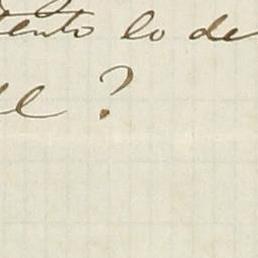 tento lo de
el ?